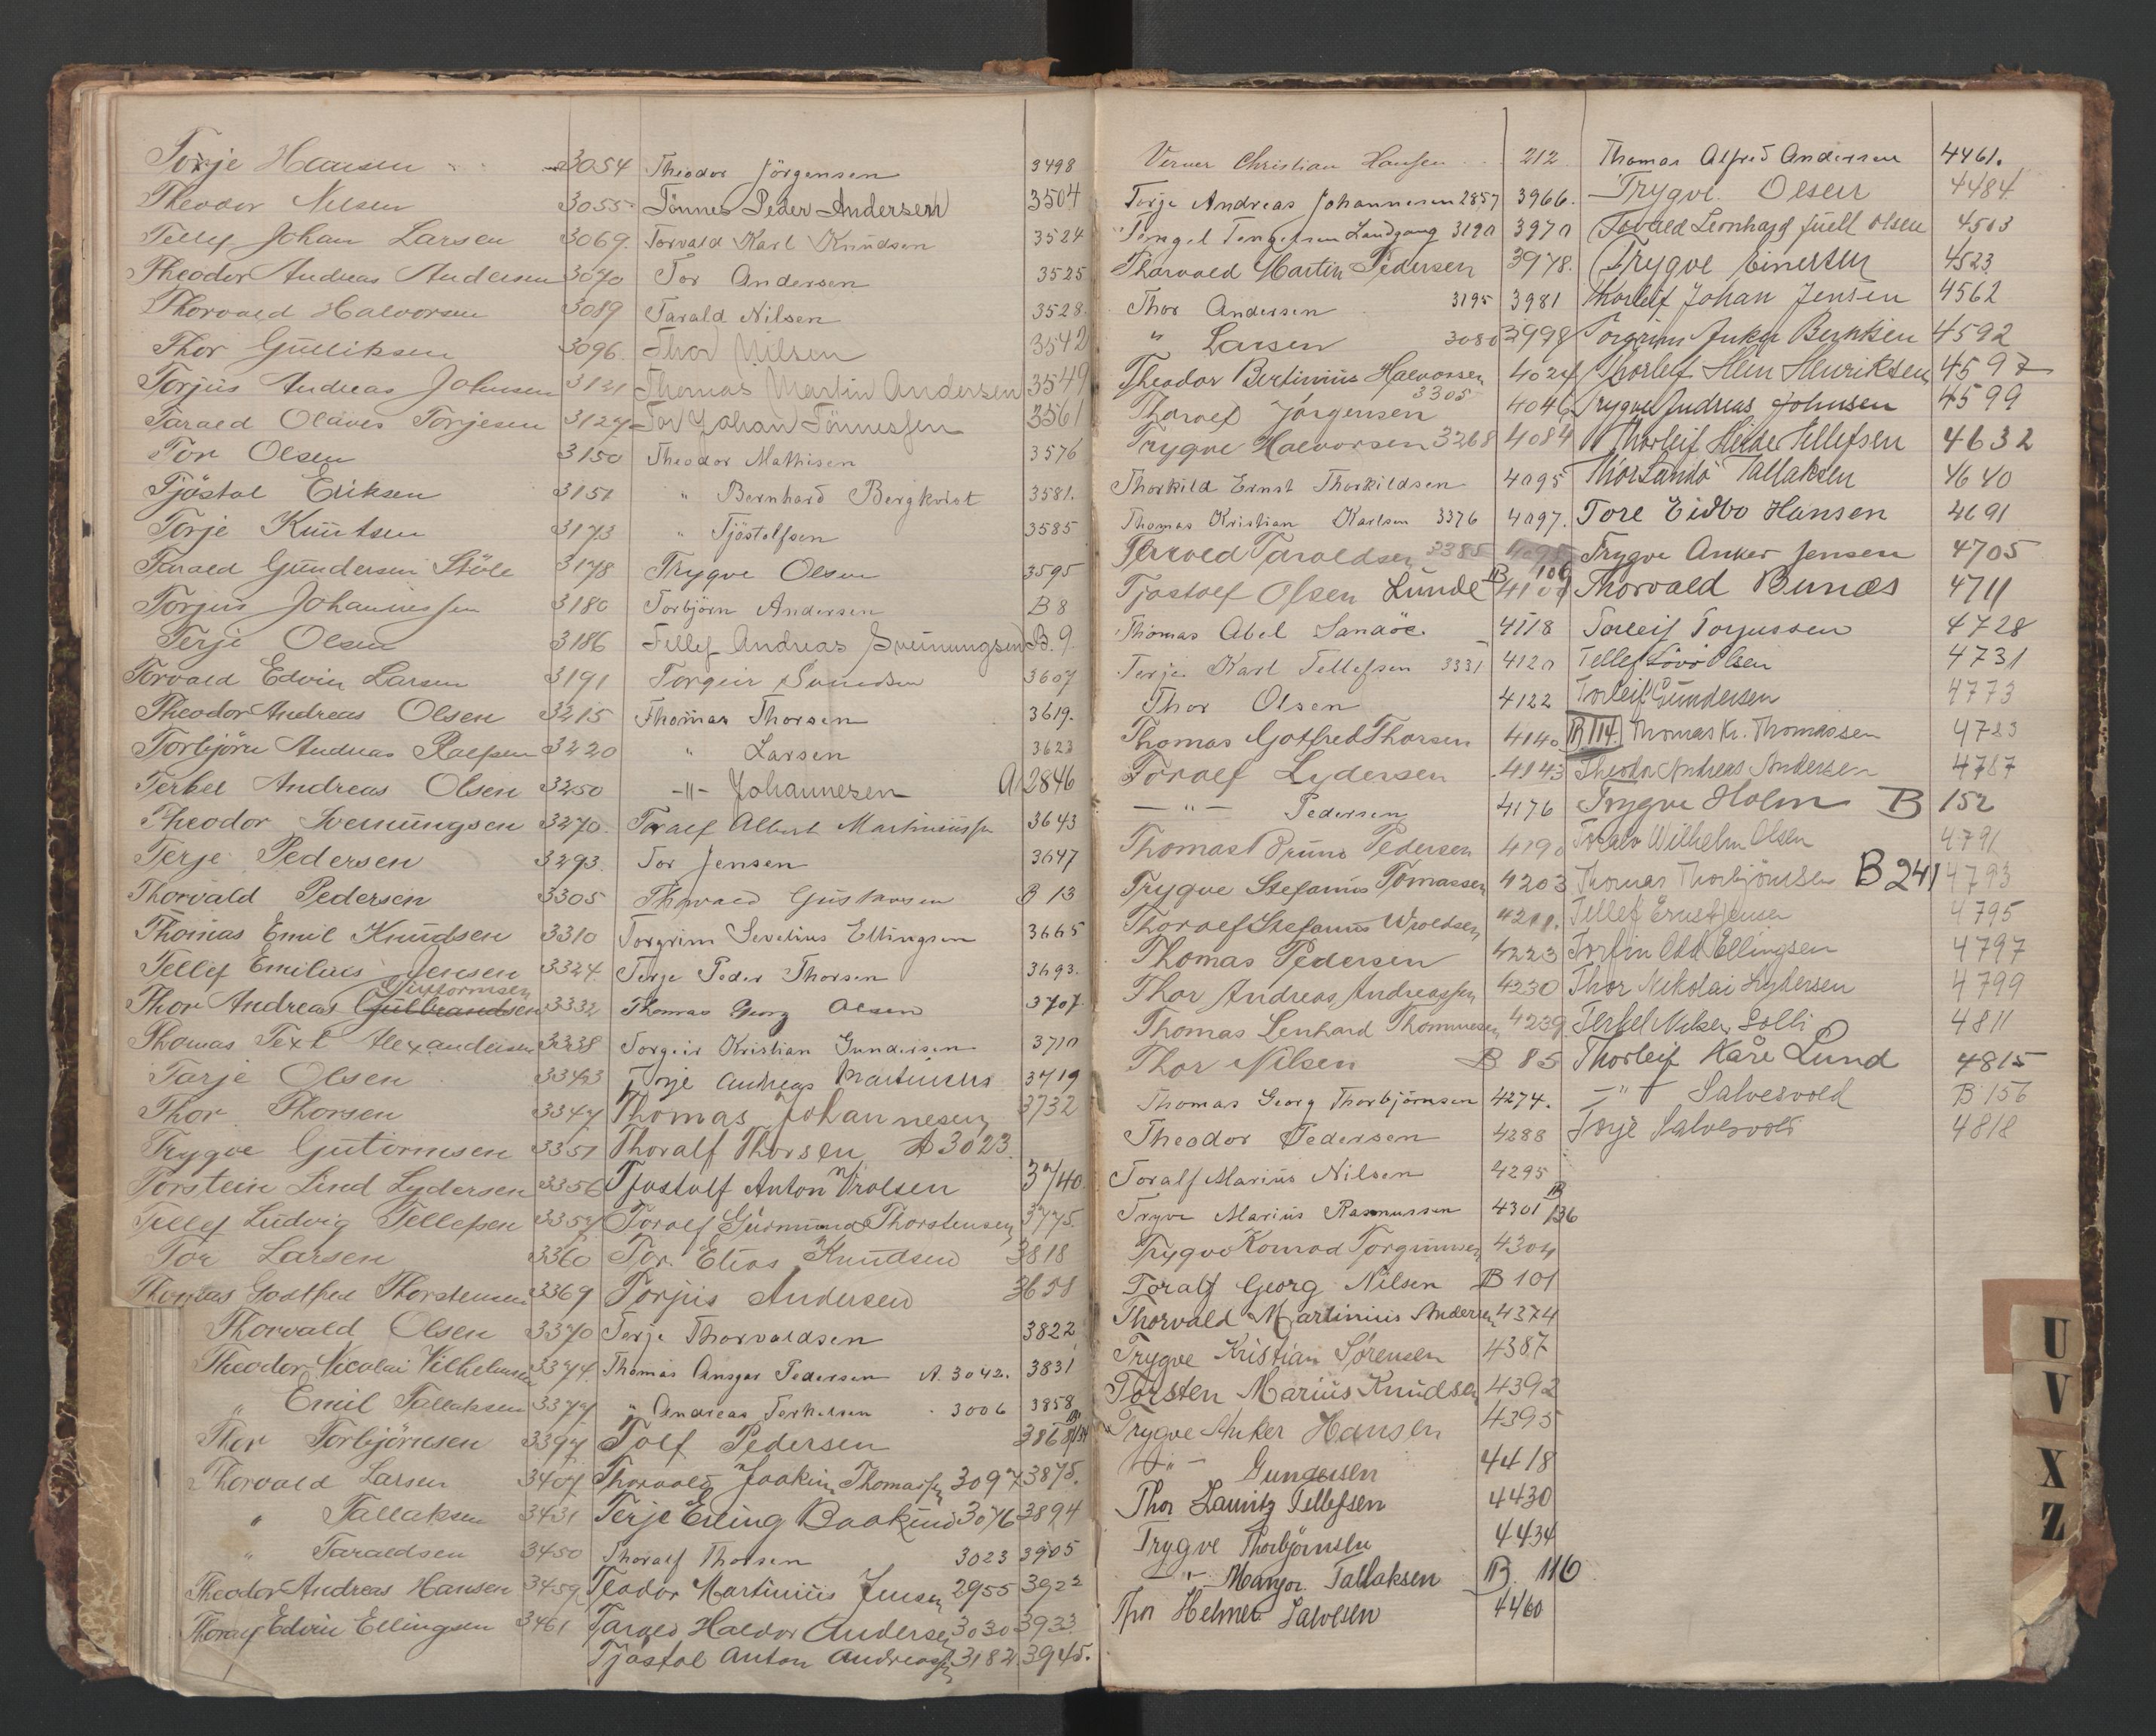 Torje Hansen 3054
Theodor Nilsen 3055
Tellef Johan Larsen 3069.
Theodor Andreas Andersen 3070
Thorvald Halvorsen 3089
Thor Gulliksen 3096.
Torjus Andreas Johnsen 3121
Tarald Olaves Torjesen 3127
Tor Olsen 3150
Tjöstol Eriksen 3151
Torje Knutsen 3173
Tarald Gundersen Stöle 3178
Torjus Johannessen 3180
Terje Olsen 3186
Torvald Edvin Larsen 3191
Theodor Andreas Olsen 3215
Torbjörn Andreas Ralfsen 3220
Terkel Andreas Olsen 3250
Theodor Svenungsen 3270.
Terje Pedersen 3293.
Thorvald Pedersen 3305
Thomas Emil Knudsen 3310
Tellef Emilius Jensen 3324.
Guttormsen
Thor Andreas Gulbrandsen 3332
Thomas Text Alexandersen 3338
Tarje Olsen 3343
Thor Thorsen 3347
Trygve Gutormsen 3351
Torstein Lind Lydersen 3356
Tellef Ludvig Tellefsen 3357
Tor Larsen 3360
Thomas Godtfred Thorstensen 3369
Thorvald Olsen 3370
Theodor Nicolai Vilhelmsen 3374.
" Emil Tallaksen 3377
Thor Torbjörnsen 3397
Thorvald Larsen 3407
" Tallaksen 3431
" Taraldsen 3450
Theodor Andreas Hansen 3459
Thoralf Edvin Ellingsen 3461
Theodor Jörgensen 3498
Tönnes Peder Andersen 3504
Torvald Karl Knudsen 3524
Tor Andersen 3525
Tarald Nilsen 3528.
Thor Nilsen 3542
Thomas Martin Andersen 3549
Tor Johan Tönnessen 3561
Theodor Mathisen 3576
" Bernhard Bergkvist 3581.
" Tjöstolfsen 3585
Trygve Olsen 3595
Torbjörn Andersen B 8
Tellef Andreas Svenungsen B. 9.
Torgeir Svendsen 3607
Thomas Thorsen 3619.
" Larsen 3623
-"- Johannesen A 2846
Toralf Albert Martiniussen 3643
Tor Jensen 3647
Thorvald Gustavsen B 13
Torgrim Severius Ellingsen 3665
Terje Peder Thorsen 3693.
Thomas Georg Olsen 3707.
Torgeir Kristian Gundersen 3710
Torje Andreas Martinsen 3719
Thomas Johannesen 3732
Thoralf Thorsen A 3023.
Tjostolf Anton Vrolsen 3740.
Toralf Gurmund Thorstensen 3775.
Tor Elias Knudsen 3818
Torjus Andersen 3658
Terje Thorvaldsen 3822
Thomas Ansgar Pedersen A. 3042. 3831
" Andreas Terkelsen 3006 3858
Tolf Pedersen 3868 B 134
Thorvald Joakim Thomassen 3097 3875.
Terje Erling Baakind 3076 3894
Thoralf Thorsen 3023 3905
Teodor Martinius Jensen 2955 3922
Tarald Haldor Andersen 3030 3933
Tjöstol Anton Andreassen 3182. 3945.
Verner Christian Hansen 212
Torje Andreas Johannesen 2857 3966.
Tengel Tengelsen Landgang 3120 3970
Thorvald Martin Pedersen 3978.
Thor Andersen 3195 3981
" Larsen 3080 3998
Theodor Bertinius Halvorsen 4024
Thoralf Jörgensen 3305 4046
Trygve Halvorsen 3268 4084
Thorkild Ernst Thorkildsen 4095
Thomas Kristian Karlsen 3376 4097.
Tarald Taraldsen 2385 4098
Tjostolf Olsen Lunde B 106 4107
Thomas Abel Sandöe. 4118
Terje Karl Tellefsen 3331 4120
Thor Olsen 4122
Thomas Gotfred Thorsen 4140 B 114.
Toralf Lydersen 4143
— " — Pedersen 4176
Thomas Bruno Pedersen 4190
Trygve Stefanus Tomassen 4203
Thoralf Stefanus Vroldsen 4211.
Thomas Pedersen 4223
Thor Andreas Andreassen 4230
Thomas Lenhard Thommesen 4239
Thor Nilsen B 85
Thomas Georg Thorbjörnsen 4274.
Theodor Pedersen 4288
Toralf Marius Nilsen 4295
Trygve Marius Rasmussen 4301 B 136
Trygve Konrad Torgrimsen 4304
Toralf Georg Nilsen B 101
Thorvald Martinius Andersen 4374
Trygve Kristian Sörensen 4387
Torsten Marius Knudsen 4392
Trygve Anker Hansen 4395
— " — Gundersen 4418
Thor Lauritz Tellefsen 4430
Trygve Thorbjörnsen 4434
— " — Manjor Tallaksen B. 116
Thor Helmer Salvesen 4460
Thomas Alfred Andersen 4461.
Trygve Olsen 4484.
Tovald Leonhard Juell Olsen 4503
Trygve Einersen 4523
Thorleif Johan Jensen 4562
Torgrim Anker Berntsen 4592
Thorleif Hein Henriksen 4597
Trygve Andreas Johnsen 4599
Thorleif Heide Tellefsen 4632
Thor Sandö Tallaksen 4640
Tore Eidbo Hansen 4691
Trygve Anker Jensen 4705
Thorvald Bunes 4711
Torleif Torjussen 4728
Tellef Lövö Olsen 4731
Torleif Gundersen 4773
Thomas Kr. Thomassen 4783
Theodor Andreas Andersen 4787
Trygve Holm B 152
Toralv Wilhelm Olsen 4791
Thomas Thorbjörnsen B 241 4793
Tellef Ernst Jensen 4795
Torfin Odd Ellingsen 4797
Thor Nikolai Lydersen 4799
Terkel Nilsen Solli 4811
Thorleif Kåre Lund 4815
— " — Salvesvold B 156
Torje Salvesvold 4818
U
V
X
Z